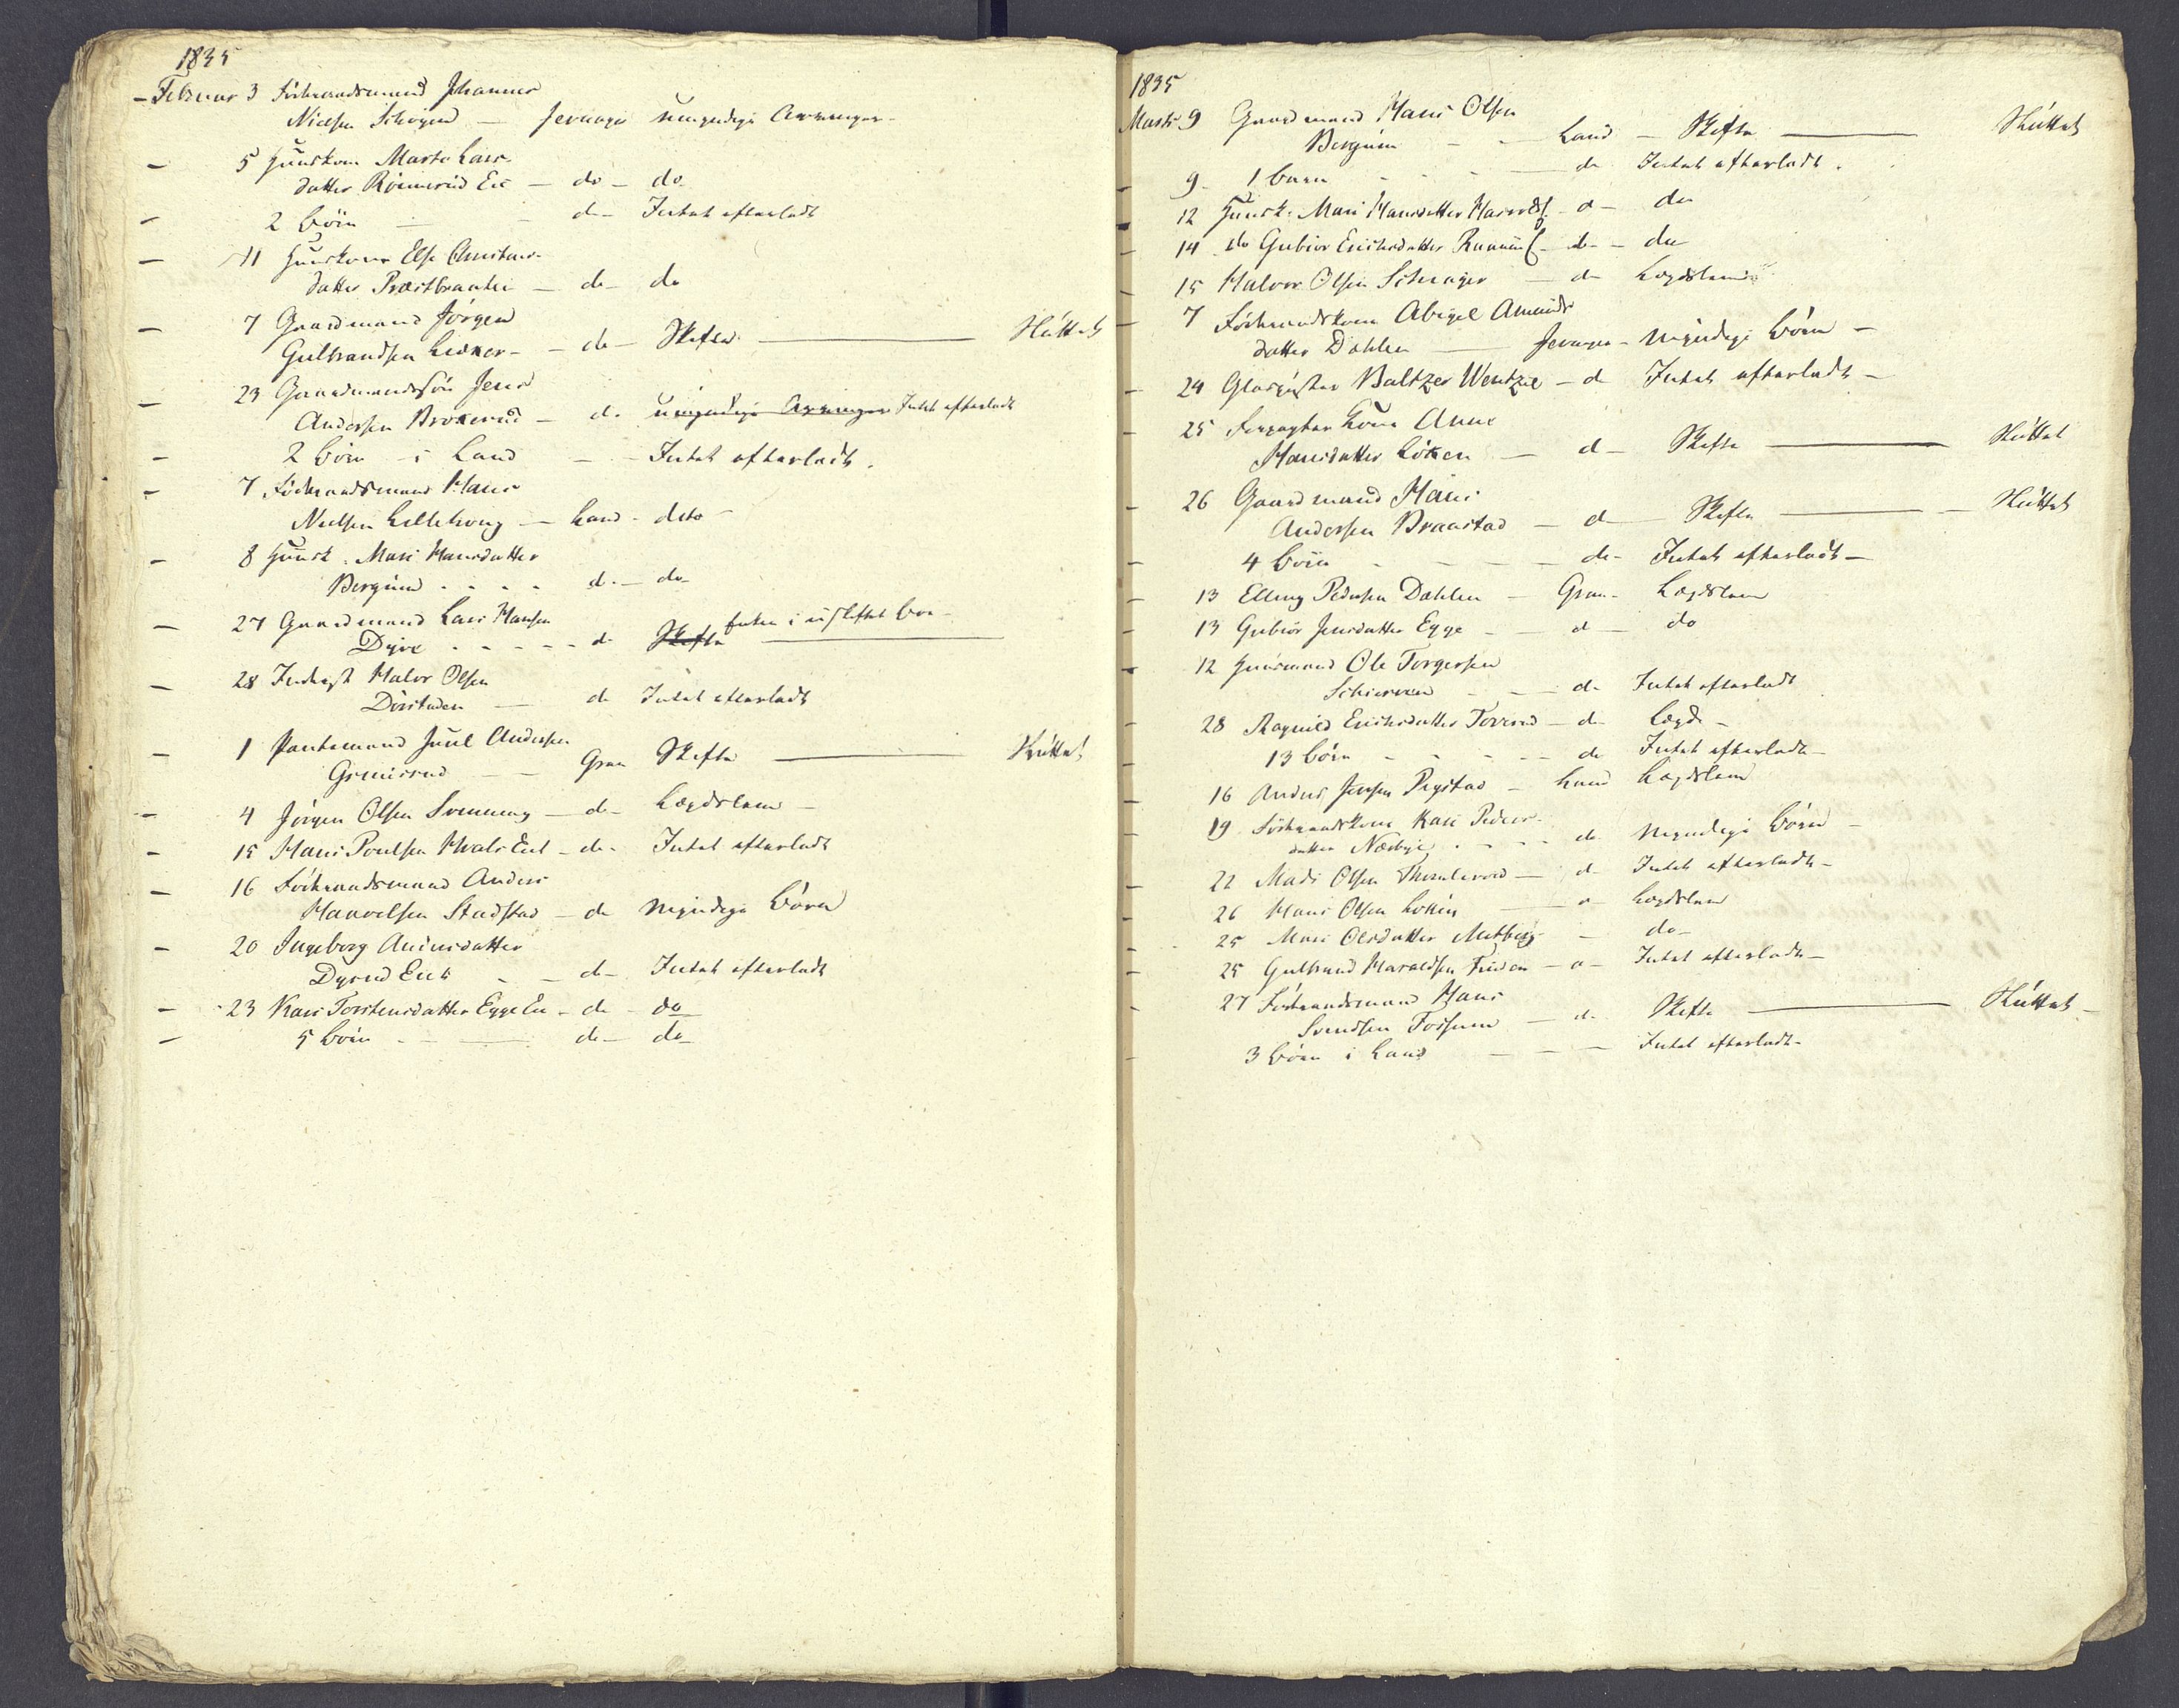 1835
- Februar 3 Föderaadsmand Johannes
Nielsen Schoyen — Jevnager umyndige Arvinger -
- 5 Huuskone Marte Lars-
datter Röinerud Eie - do - do
- 2 börn - - do - Intet efterladt
- 11 Huuskone Else Christens-
datter Præstbraaten - do - do
- 7 Gaardmand Jörgen
Gulbrandsen Lidker - do - Skifte — Sluttet
- 23 Gaardmandssön Jens
Andersen Brokerud - do umyndige Arvinger Intet efterladt
- 2 börn i Land - - Intet efterladt.
- 7 Föderaadsmand Hans
Nielsen Lillehoug - Land - dito -
- 8 Huusk. Mari Hansdatter
Bergum . . . . do - do
- 27 Gaardmand Lars Hansen
Dyve . . . . . do Skifte Enken i uskiftet boe -
- 28 Inderst Halvor Olsen
- do Intet efterladt
- 1 Pantemand Juul Andersen
Grinerud - - Gran Skifte — Sluttet
- 4 Jörgen Olsen Svenning - do - Lægdslem -
- 15 Hans Poulsen Hvals Eie - do - Intet efterladt
- 16 Föderaadsmand Anders
Haavelsen Stadstad - do myndige börn
- 20 Ingeborg Andersdatter
Dyrud Eie - - do - Intet efterladt
- 23 Kari Torstensdatter Egge Eie - do - do
- 5 börn - - do - do
1835
Marts 9 Gaardmand Hans Olsen
Bergum - - Land - Skifte — Sluttet
- 9 - 1 barn - - - do Intet efterladt.
- 12 Huusk. Mari Hansdatter - do - do
- 14 do Gubiör Erichsdatter - do - do
- 15 Halvor Olsen Schrager - do - Lægdslem
- 7 Föderaadskone Abigel Amunds
datter Dahlen — Jevnager - myndige börn -
- 24 Glaspuster Baltzer Wentzel - do Intet efterladt -
- 25 Forpagter Kone Anne
Hansdatter Löken - do - Skifte — Sluttet
- 26 Gaardmand Hans
Andersen Braastad - do - Skifte — Sluttet
- 4 börn - - - do - Intet efterladt -
- 13 Elling Pedersen Dahlen - Gran - Lægdslem
- 13 Gubiör Jensdatter Egge - - do - do
- 12 Huusmand Ole Torgersen
Schierven - - do - Intet efterladt
- 28 Ragnild Erichsdatter - do - Lægd -
- 13 börn - - - do Intet efterladt -
- 16 Anders Jensen - Land Lægdslem
- 19 Föderaadskone Kari Peders-
datter Næsbye . - - do myndige börn -
- 22 Mads Olsen - do - Intet efterladt -
- 26 Hans Olsen - do - Lægdslem
- 25 Mari Olsdatter - do -
- 25 Gulbrand Haraldsen - do - Intet efterladt -
- 27 Föderaadsmand Hans
Svendsen Fossum - do - Skifte — Sluttet -
- 3 börn i Land - - - Intet efterladt -